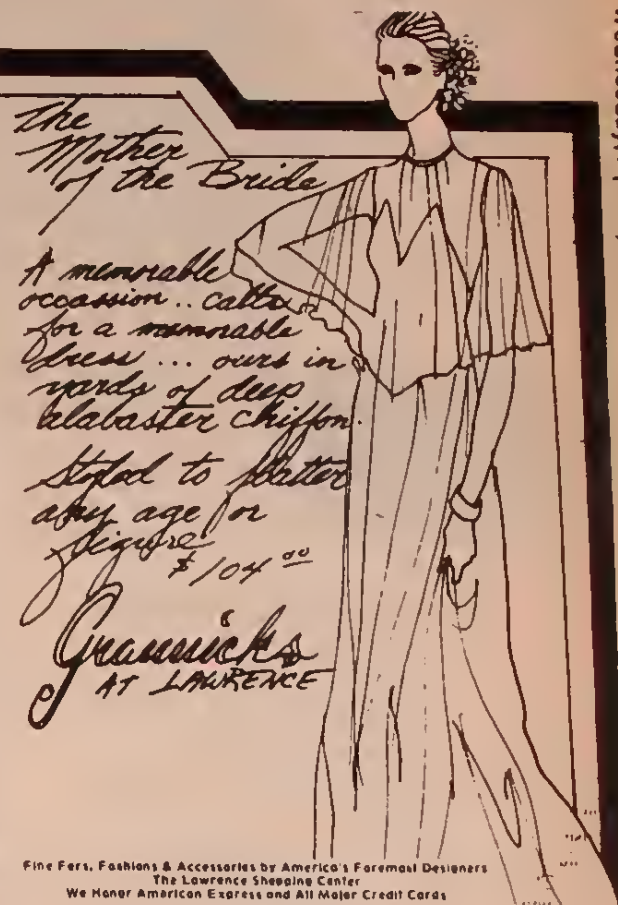 the
Mother
of the Bride
A memorable
occassion.. calls
for a memorable
dress ... ours in
yards of deep
alabaster chiffon.
Styled to flatter
any age or
figure
$104.00
at LAWRENCE
Fine Fers, Fashions & Accessories by America's Foremost Designers
The Lawrence Shopping Center
We Honor American Express and All Major Credit Cards